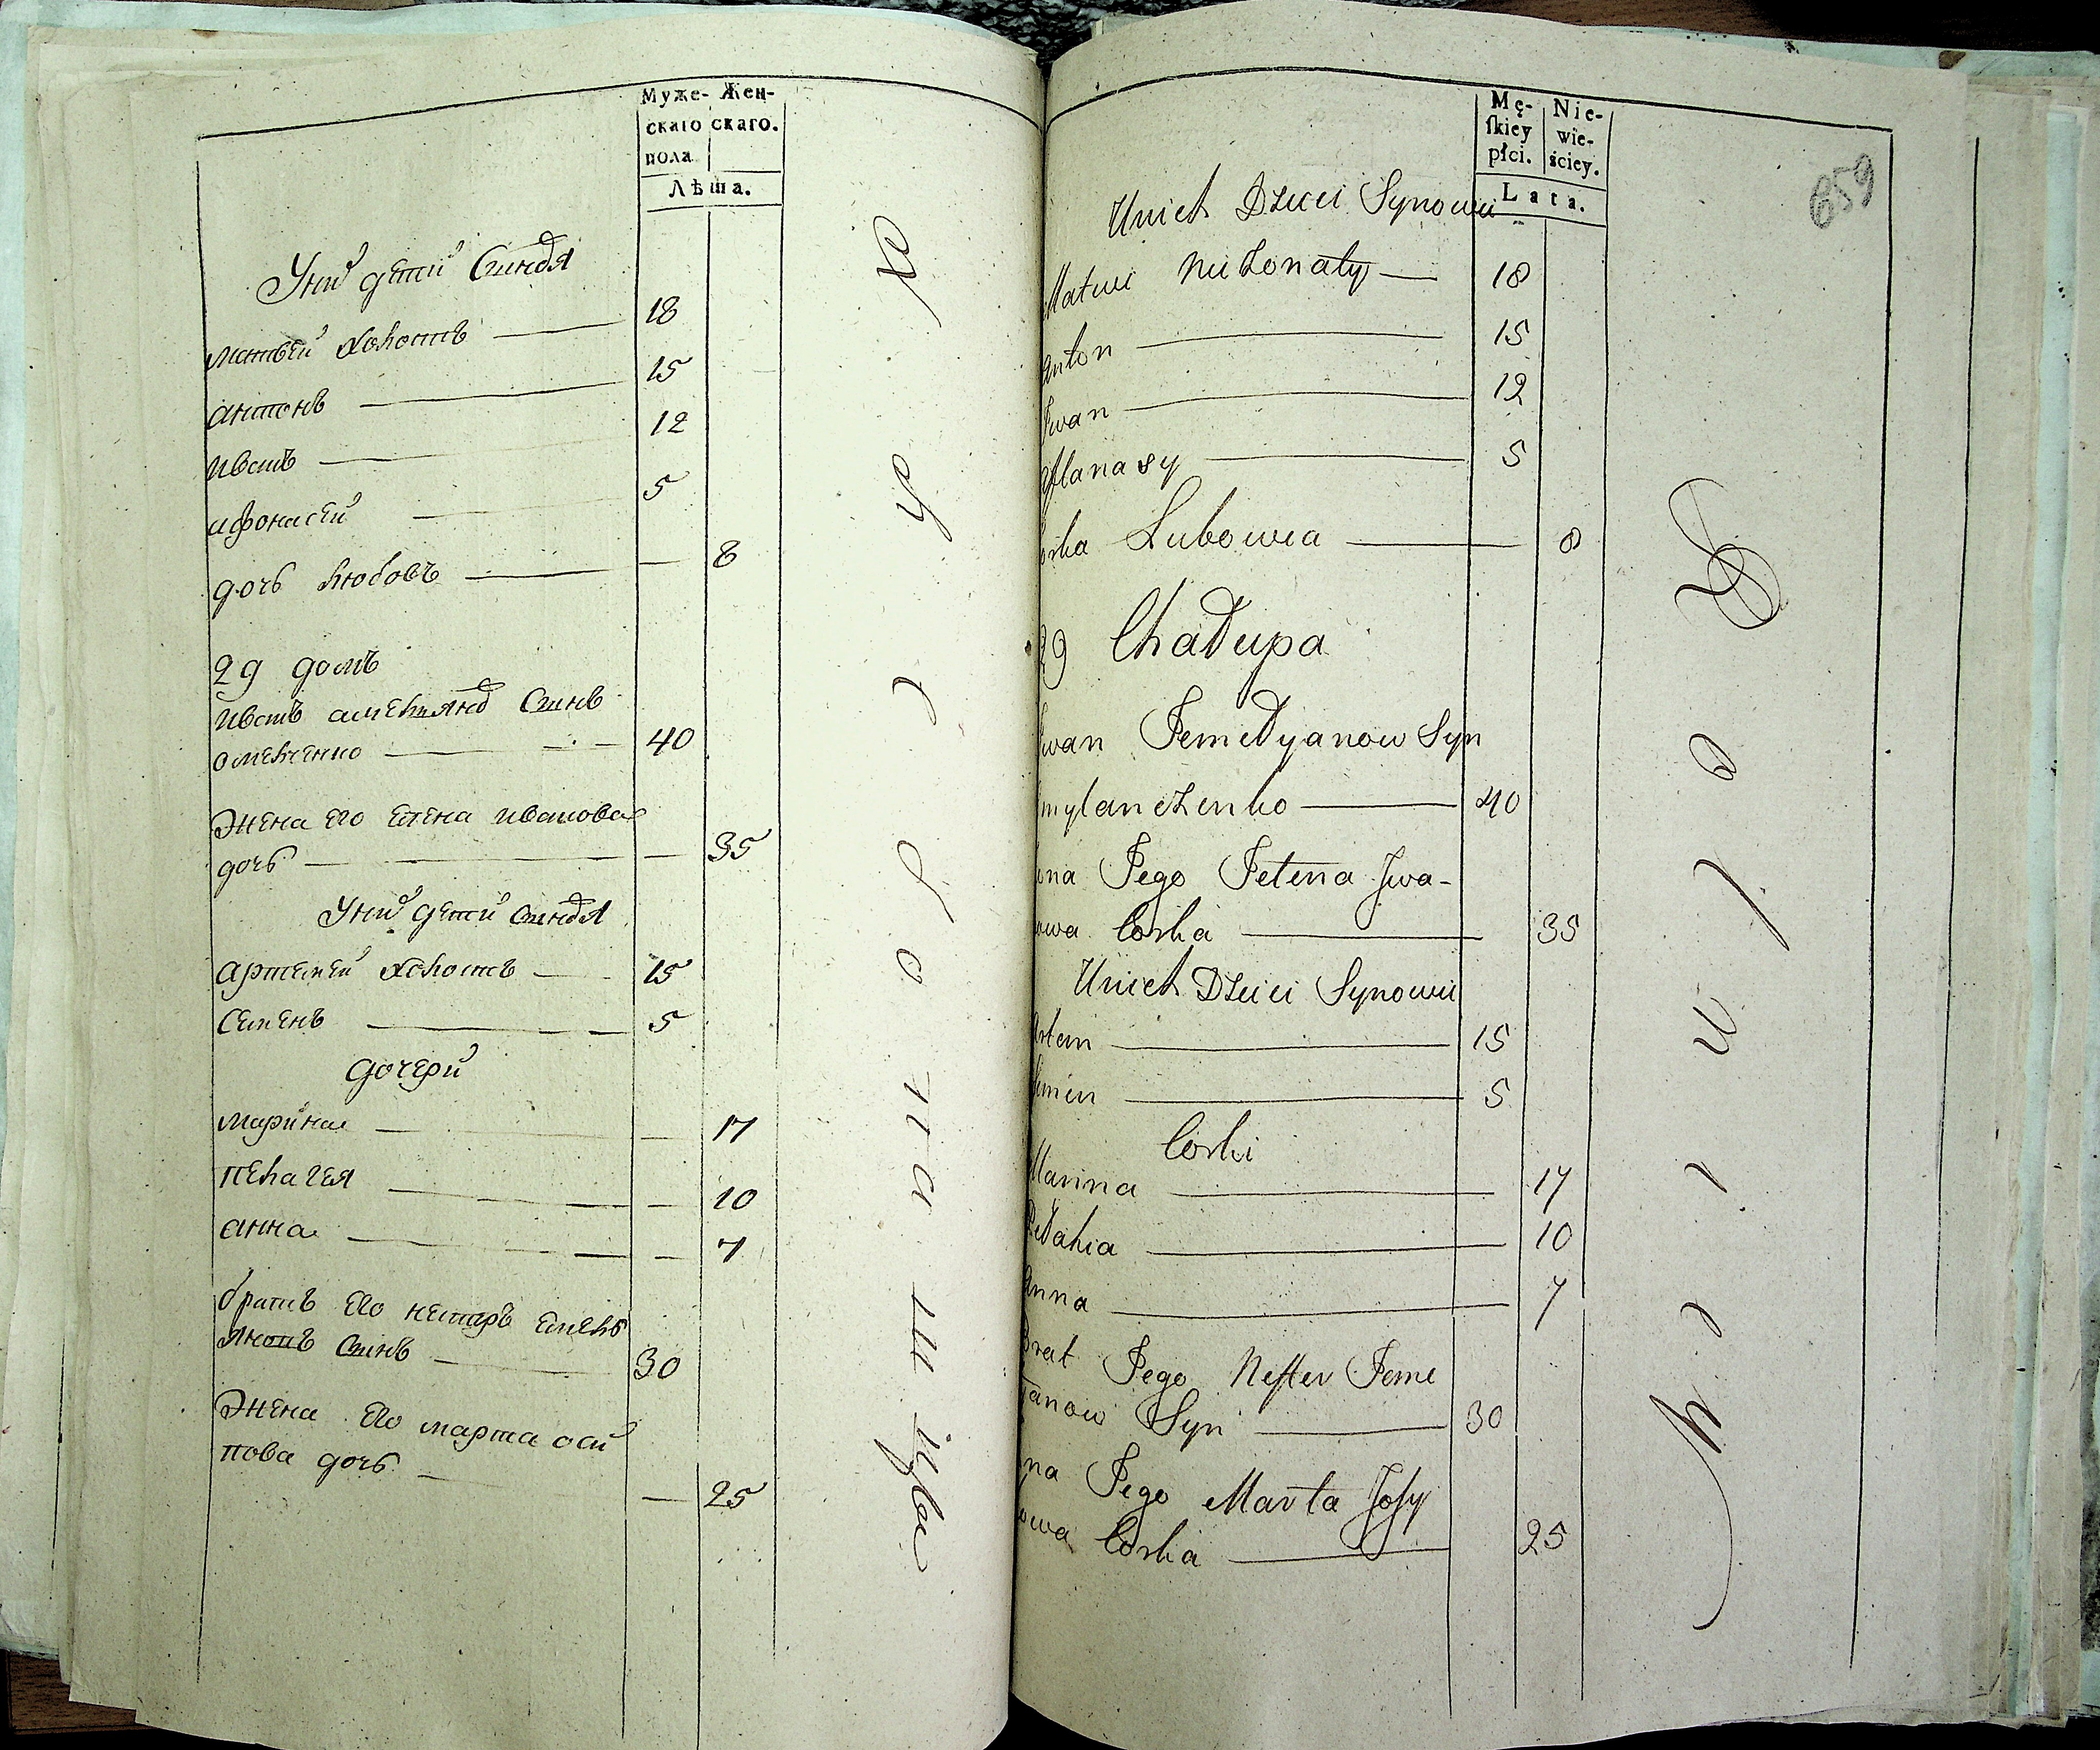 Муже- Жен-
скаго скаго.
пола
Лѣта.
Унихъ дети Синовя
матвѣй холостъ — 18
антонъ — 15
иванъ — 12
афонасей — 5
дочь любовъ — 8
29 домъ
иванъ емельяновъ Синъ
омелченко — 40
жена его елена иванова
дочь — 35
Унихъ дети синовя
артемей холостъ — 15
Семенъ — 5
дочери
марина — 17
пелагея — 10
анна — 7
братъ его нестеръ емель
яновъ Синъ — 30
жена его марта оси
пова дочь — 25
Mę- Nie-
skiey wie-
płci. ściey.
Lata.
659
Unich Dzieci Synowie
Matwi nieżonaty — 18
Anton — 15
Iwan — 12
Afanasy — 5
orka Lubowia — 8
29 Chałupa
Iwan Jemełyanow Syn
mylanczenko — 40
ona Jego Jelena Iwa-
owa Corka — 35
Unich Dzieci Synowie
Artem — 15
Simen — 5
Corki
Marina — 17
Pełahia — 10
Anna — 7
Brat Jego Nester Jeme
yanow Syn — 30
na Jego Marta Josy
owa Corka — 25